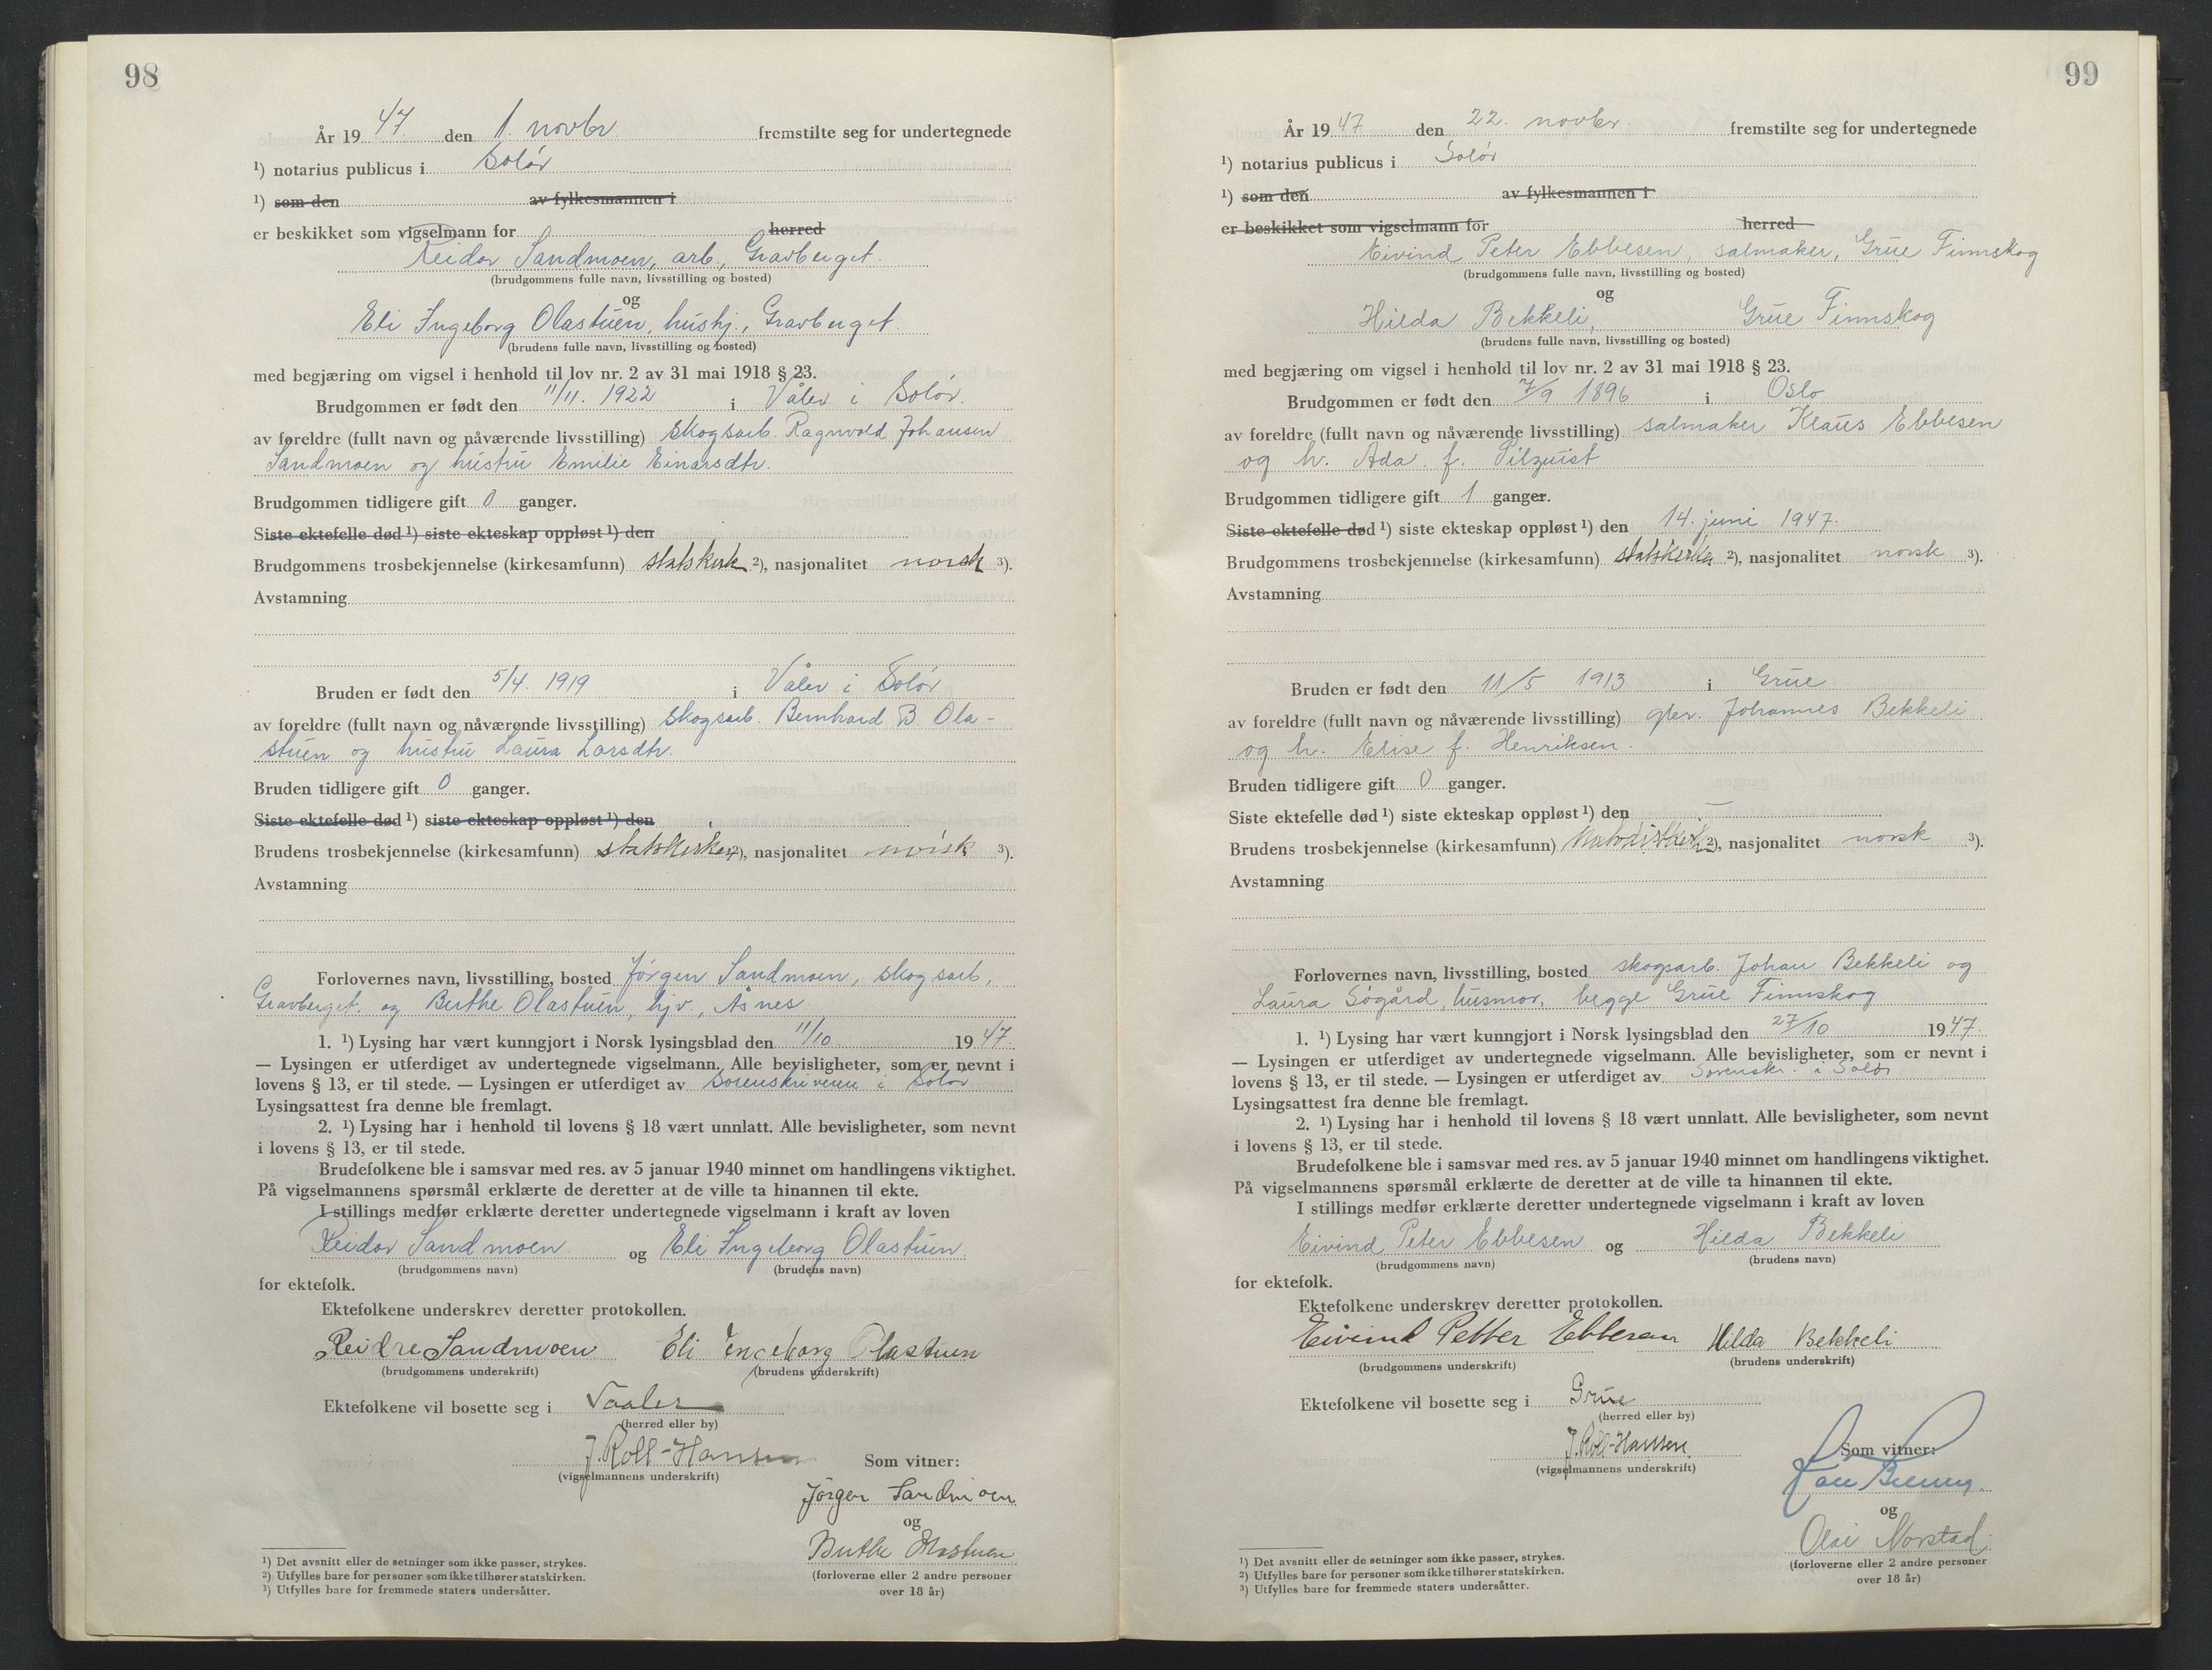 98
År 1947 den 1. novbr. fremstilte seg for undertegnede
¹) notarius publicus i Solør
¹) som den av fylkesmannen i
er beskikket som vigselmann for herred
Reidar Sandmoen, arb., Gravberget.
(brudgommens fulle navn, livsstilling og bosted)
og
Eli Ingeborg Olastuen, hushj., Gravberget.
(brudens fulle navn, livsstilling og bosted)
med begjæring om vigsel i henhold til lov nr. 2 av 31 mai 1918 § 23.
Brudgommen er født den 11/11. 1922 i Våler i Solør.
av foreldre (fullt navn og nåværende livsstilling) skogsarb. Ragnvald Johansen
Sandmoen og hustru Emilie Einarsdtr.
Brudgommen tidligere gift 0 ganger.
Siste ektefelle død ¹) siste ekteskap oppløst ¹) den
Brudgommens trosbekjennelse (kirkesamfunn) statskirk ²), nasjonalitet norsk ³).
Avstamning
Bruden er født den 5/4. 1919 i Våler i Solør
av foreldre (fullt navn og nåværende livsstilling) skogsarb. Bernhard B. Ola-
stuen og hustru Laura Larsdtr.
Bruden tidligere gift 0 ganger.
Siste ektefelle død ¹) siste ekteskap oppløst ¹) den
Brudens trosbekjennelse (kirkesamfunn) statskirken ²), nasjonalitet norsk ³).
Avstamning
Forlovernes navn, livsstilling, bosted Jørgen Sandmoen, skogsarb.,
Gravberget. og Berthe Olastuen, hjv., Åsnes
1. ¹) Lysing har vært kunngjort i Norsk lysingsblad den 11/10 1947.
— Lysingen er utferdiget av undertegnede vigselmann. Alle bevisligheter, som er nevnt i
lovens § 13, er til stede. — Lysingen er utferdiget av sorenskriveren i Solør
Lysingsattest fra denne ble fremlagt.
2. ¹) Lysing har i henhold til lovens § 18 vært unnlatt. Alle bevisligheter, som nevnt
i lovens § 13, er til stede.
Brudefolkene ble i samsvar med res. av 5 januar 1940 minnet om handlingens viktighet.
På vigselmannens spørsmål erklærte de deretter at de ville ta hinannen til ekte.
I stillings medfør erklærte deretter undertegnede vigselmann i kraft av loven
Reidar Sandmoen og Eli Ingeborg Olastuen
(brudgommens navn) (brudens navn)
for ektefolk.
Ektefolkene underskrev deretter protokollen.
Reidar Sandmoen Eli Ingeborg Olastuen
(brudgommens underskrift) (brudens underskrift)
Ektefolkene vil bosette seg i Vaaler
(herred eller by)
J. Roll-Hansen Som vitner:
(vigselmannens underskrift)
Jørgen Sandmoen
og
Berthe Olastuen
(forloverne eller 2 andre personer
over 18 år)
¹) Det avsnitt eller de setninger som ikke passer, strykes.
²) Utfylles bare for personer som ikke tilhører statskirken.
³) Utfylles bare for fremmede staters undersåtter.
99
År 1947 den 22. novbr. fremstilte seg for undertegnede
¹) notarius publicus i Solør
¹) som den av fylkesmannen i
er beskikket som vigselmann for herred
Eivind Peter Ebbesen, salmaker, Grue Finnskog
(brudgommens fulle navn, livsstilling og bosted)
og
Hilda Bekkeli, Grue Finnskog
(brudens fulle navn, livsstilling og bosted)
med begjæring om vigsel i henhold til lov nr. 2 av 31 mai 1918 § 23.
Brudgommen er født den 7/9 1896 i Oslo
av foreldre (fullt navn og nåværende livsstilling) salmaker Klaus Ebbesen
og h. Ada. f. Pilquist
Brudgommen tidligere gift 1 ganger.
Siste ektefelle død ¹) siste ekteskap oppløst ¹) den 14. juni 1947.
Brudgommens trosbekjennelse (kirkesamfunn) statskirke ²), nasjonalitet norsk ³).
Avstamning
Bruden er født den 11/5 1913 i Grue
av foreldre (fullt navn og nåværende livsstilling) gbr. Johannes Bekkeli
og h. Elise f. Henriksen.
Bruden tidligere gift 0 ganger.
Siste ektefelle død ¹) siste ekteskap oppløst ¹) den —
Brudens trosbekjennelse (kirkesamfunn) ²), nasjonalitet norsk ³).
Avstamning
Forlovernes navn, livsstilling, bosted skogsarb. Johan Bekkeli og
Laura Søgård, husmor, begge Grue Finnskog
1. ¹) Lysing har vært kunngjort i Norsk lysingsblad den 27/10 1947.
— Lysingen er utferdiget av undertegnede vigselmann. Alle bevisligheter, som er nevnt i
lovens § 13, er til stede. — Lysingen er utferdiget av Sorenskr. i Solør
Lysingsattest fra denne ble fremlagt.
2. ¹) Lysing har i henhold til lovens § 18 vært unnlatt. Alle bevisligheter, som nevnt
i lovens § 13, er til stede.
Brudefolkene ble i samsvar med res. av 5 januar 1940 minnet om handlingens viktighet.
På vigselmannens spørsmål erklærte de deretter at de ville ta hinannen til ekte.
I stillings medfør erklærte deretter undertegnede vigselmann i kraft av loven
Eivind Peter Ebbesen og Hilda Bekkeli
(brudgommens navn) (brudens navn)
for ektefolk.
Ektefolkene underskrev deretter protokollen.
Eivind Petter Ebbesen Hilda Bekkeli
(brudgommens underskrift) (brudens underskrift)
Ektefolkene vil bosette seg i Grue
(herred eller by)
J. Roll-Hansen Som vitner:
(vigselmannens underskrift)
og
Olai Norstad.
(forloverne eller 2 andre personer
over 18 år)
¹) Det avsnitt eller de setninger som ikke passer, strykes.
²) Utfylles bare for personer som ikke tilhører statskirken.
³) Utfylles bare for fremmede staters undersåtter.